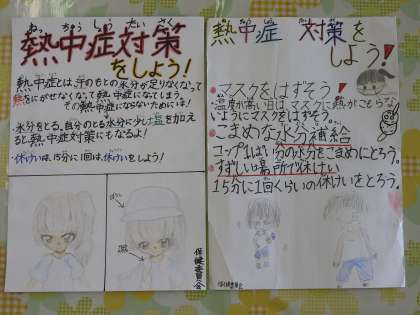 熱中症対策
をしよう!
熱中症とは、汗のもとの水分が足りなくなって
熱をにがせなくなって熱中症になってしまう。
その熱中症にならないためには!
・水分をとる、自分のとる水分に少し塩を加え
ると熱中症対策にもなるよ!
・休けいは、15分に1回は、休けいをしよう!
保健委員会
熱中症 対策を
しよう!
・マスクをはずそう!
温度が高い日は、マスクに熱がこもらな
いようにマスクをはずそう。
・こまめな水分補給
コップ1ぱい分の水分をこまめにとろう。
・すずしい場所で休けい
15分に1回くらいの休けいをとろう。
保健委員会